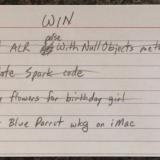 WIN
ACR also With NullObjects met
ate Spark code
flowers for birthday girl
Blue Parrot wkg on iMac